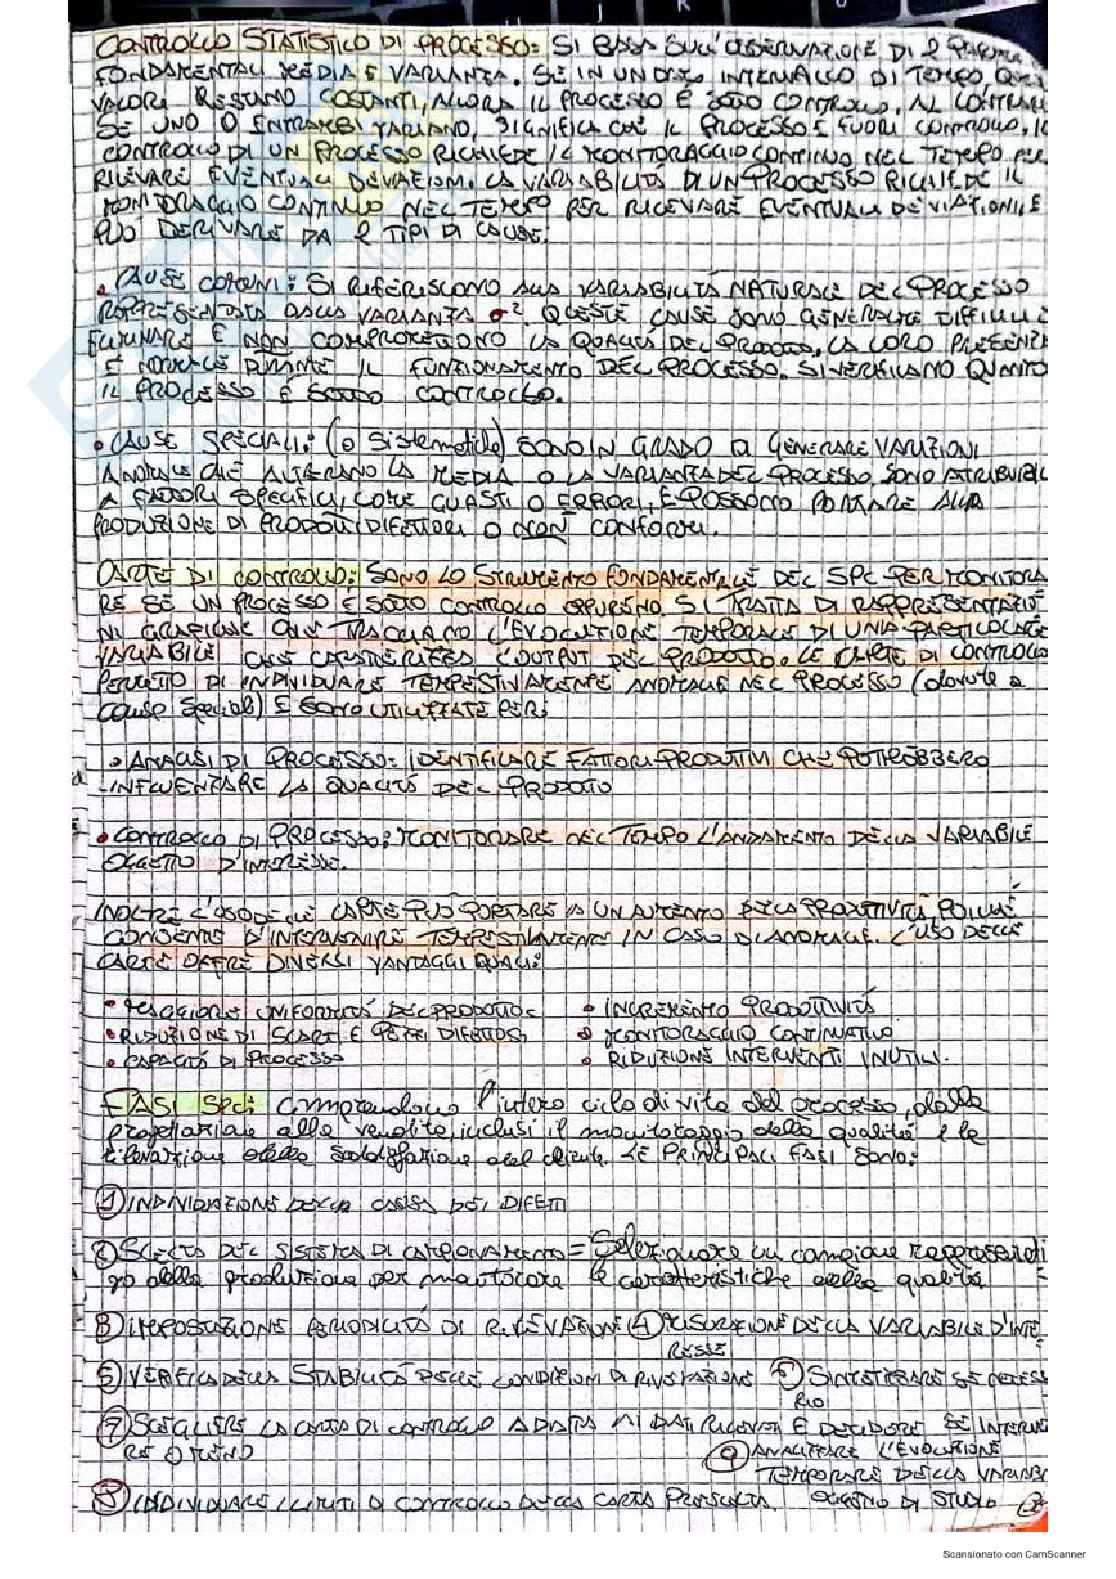 CONTROLLO STATISTICO DI PROCESSO: SI BASA SULL'OSSERVAZIONE DI 2
FONDAMENTALI MEDIA E VARIANZA. SE IN UN DATO INTERVALLO DI TEMPO, QUESTI
VALORI RESTANO COSTANTI, ALLORA IL PROCESSO È SOTTO CONTROLLO. AL CONTRARIO
SE UNO O ENTRAMBI VARIANO, SIGNIFICA CHE IL PROCESSO È FUORI CONTROLLO, IL
CONTROLLO DI UN PROCESSO RICHIEDE IL MONITORAGGIO CONTINUO NEL TEMPO PER
RILEVARE EVENTUALI DEVIAZIONI. LA VARIABILITÀ DI UN PROCESSO RICHIEDE IL
MONITORAGGIO CONTINUO NEL TEMPO PER RILEVARE EVENTUALI DEVIATIONI, E
PUÒ DERIVARE DA 2 TIPI DI CAUSE:
• CAUSE COMUNI: SI RIFERISCONO ALLA VARIABILITÀ NATURALE DEL PROCESSO
RAPPRESENTATA DALLA VARIANZA σ². QUESTE CAUSE SONO GENERALMTE DIFFICILI
ELIMINARE E NON COMPROMETTONO LA QUALITÀ DEL PRODOTTO. LA LORO PRESENZA
È NORMALE DURANTE IL FUNZIONAMENTO DEL PROCESSO. SI VERIFICANO QUANDO
IL PROCESSO È SOTTO CONTROLLO.
• CAUSE SPECIALI: (o Sistematiche) SONO IN GRADO DI GENERARE VARIAZIONI
ANOMALE CHE ALTERANO LA MEDIA O LA VARIANZA DEL PROCESSO. SONO ATTRIBUIBIL
A FATTORI SPECIFICI, COME GUASTI O ERRORI, E POSSONO PORTARE ALLA
PRODUZIONE DI PRODOTTI DIFETTOSI O NON CONFORMI.
CARTE DI CONTROLLO: SONO LO STRUMENTO FONDAMENTALE DEL SPC PER MONITORA
RE SE UN PROCESSO È SOTTO CONTROLLO OPPURE NO. SI TRATTA DI RAPPRESENTAZIO
NI GRAFICHE CHE TRACCIANO L'EVOLUZIONE TEMPORALE DI UNA PARTICOLARE
VARIABILE CHE CARATTERIZZA L'OUTPUT DEL PRODOTTO. LE CARTE DI CONTROLLO
PERMETTO DI INDIVIDUARE TEMPESTIVAMENTE ANOMALIE NEL PROCESSO (dovute a
cause speciali) E SONO UTILIZZATE PER:
• ANALISI DI PROCESSO: IDENTIFICARE FATTORI PRODUTTIVI CHE POTREBBERO
INFLUENZARE LA QUALITÀ DEL PRODOTTO
• CONTROLLO DI PROCESSO: MONITORARE NEL TEMPO L'ANDAMENTO DELLA VARIABILE
OGGETTO D'INTERESSE.
INOLTRE L'USO DELLE CARTE PUÒ PORTARE A UN AUMENTO DELLA PRODUTTIVITÀ, POICHÉ
CONSENTE D'INTERVENIRE TEMPESTIVAMENTE IN CASO DI ANOMALIE. L'USO DELLE
CARTE OFFRE DIVERSI VANTAGGI QUALI:
• MAGGIORE UNIFORMITÀ DEL PRODOTTO • INCREMENTO PRODUTTIVITÀ
• RIDUZIONE DI SCARTI E PEZZI DIFETTOSI • MONITORAGGIO CONTINUATIVO
• CAPACITÀ DI PROCESSO • RIDUZIONE INTERVENTI INUTILI.
FASI SPC: comprendono l'intero ciclo di vita del processo, dalla
progettazione alla vendita, inclusi il monitoraggio della qualità e la
rilevazione della soddisfazione del cliente. LE PRINCIPALI FASI SONO:
① INDIVIDAZIONE DELLA CAUSA DEI DIFETTI
② SCELTA DEL SISTEMA DI CAMPIONAMENTO = Selezionare un campione rappresentati
vo della produzione per monitorare le caratteristiche della qualità
③ IMPOSTAZIONE PERIODICITÀ DI RILEVAZIONE ④ MISURAZIONE DELLA VARIABILE D'INTE-
RESSE
⑤ VERIFICA DELLA STABILITÀ DELLE CONDIZIONI DI RILEVAZIONE ⑥ SINTETIZZARE SE NECESSA
RIO
⑦ SCEGLIERE LA CARTA DI CONTROLLO ADATTA AI DATI RILEVATI E DECIDERE SE INTERVENI
RE O MENO ⑨ ANALIZZARE L'EVOLUZIONE
TEMPORALE DELLA VARIABI
⑧ INDIVIDUARE I LIMITI DI CONTROLLO DELLA CARTA PRESCELTA. OGGETTO DI STUDIO
Scansionato con CamScanner